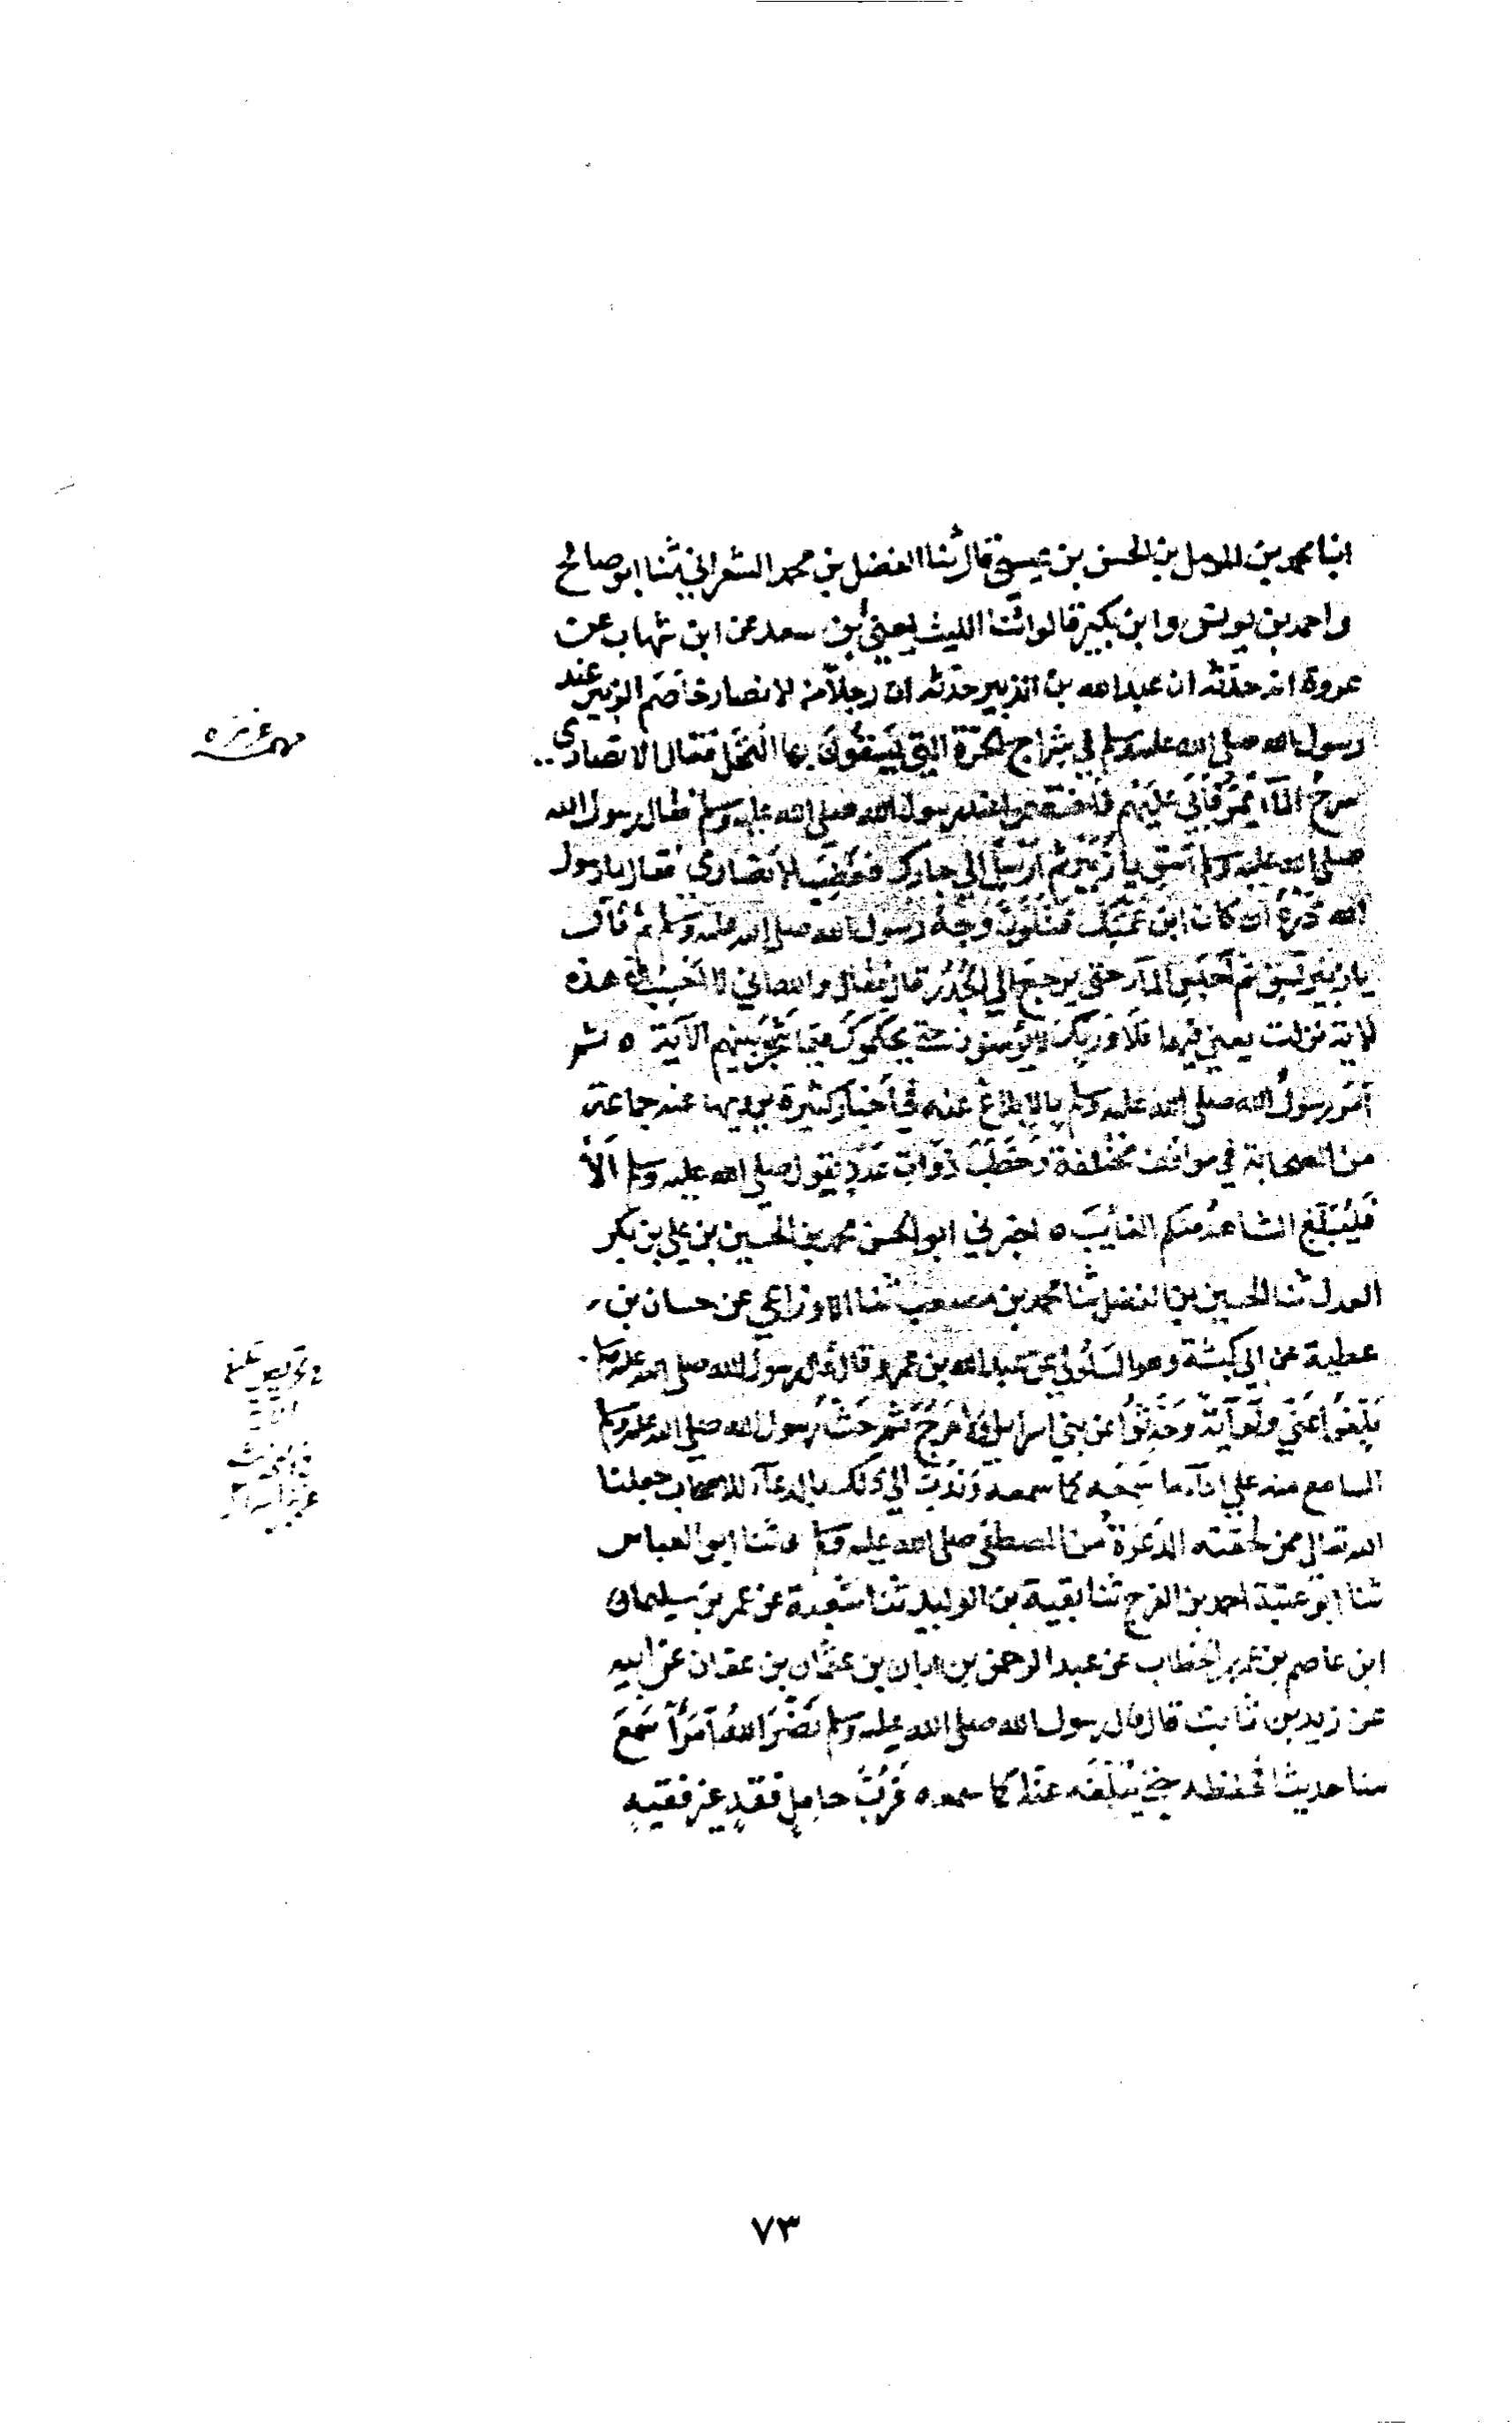 انبا محمد بن المؤمل بن الحسن بن عيسى قال ثنا الفضل بن محمد الشعراني ثنا ابو صالح
واحمد بن يونس وابن بكير قالوا ثنا الليث يعني ابن سعد عن ابن شهاب عن
عروة انه حدثه ان عبدالله بن الزبير حدثه ان رجلا من الانصار خاصم الزبير عند
رسول الله صلى الله عليه وسلم في شراج الحرة التي يسقون بها النخل فقال الانصارى
سرح المآء يمر فأبى عليهم فاختصموا عند رسول الله صلى الله عليه وسلم فقال رسول الله
صلى الله عليه وسلم اسق يا زبير ثم ارسل الى جارك فغضب الانصارى فقال يا رسول
الله أن كان ابن عمتك فتلون وجه رسول الله صلى الله عليه وسلم ثم قال
يا زبير اسق ثم احبس المآء حتى يرجع الى الجدر قال فقال والله اني لا احسب هذه
الاية نزلت يعني فيها فلا وربك لا يؤمنون حتى يحكموك فيما شجر بينهم الآية ه ثم
أمر رسول الله صلى الله عليه وسلم بالابلاغ عنه في أخبار كثيرة يرويها عنه جماعة
من الصحابة في مواقف مختلفة وخطب ذوات عدد يقول صلى الله عليه وسلم ألا
فليبلغ الشاهد منكم الغايب ه اخبرني ابو الحسن محمد بن الحسين بن علي بن بكر
العدل ثنا الحسين بن الفضل ثنا محمد بن مصعب ثنا الاوزاعي عن حسان بن
عطية عن ابي كبشة وهو السلولي عن عبدالله بن عمرو قال قال رسول الله صلى الله عليه وسلم
بلغوا عني ولو آية وحدثوا عن بني اسرائيل ولا حرج ثم حث رسول الله صلى الله عليه وسلم
السامع منه على ادآء ما سمعه كما سمعه وندب الى ذلك بالدعآء للاصحاب جعلنا
الله تعالى ممن لحقته الدعوة من المصطفى صلى الله عليه وسلم حدثنا ابو العباس
ثنا ابو عتبة احمد بن الفرج ثنا بقية بن الوليد ثنا شعبة عن عمر بن سليمان
ابن عاصم بن عمر بن الخطاب عن عبد الرحمن بن ابان بن عثمان بن عفان عن ابيه
عن زيد بن ثابت قال قال رسول الله صلى الله عليه وسلم نضر الله امرأ سمع
منا حديثا فحفظه حتى يبلغه عنا كما سمعه فرب حامل فقه غير فقيه
٧٣